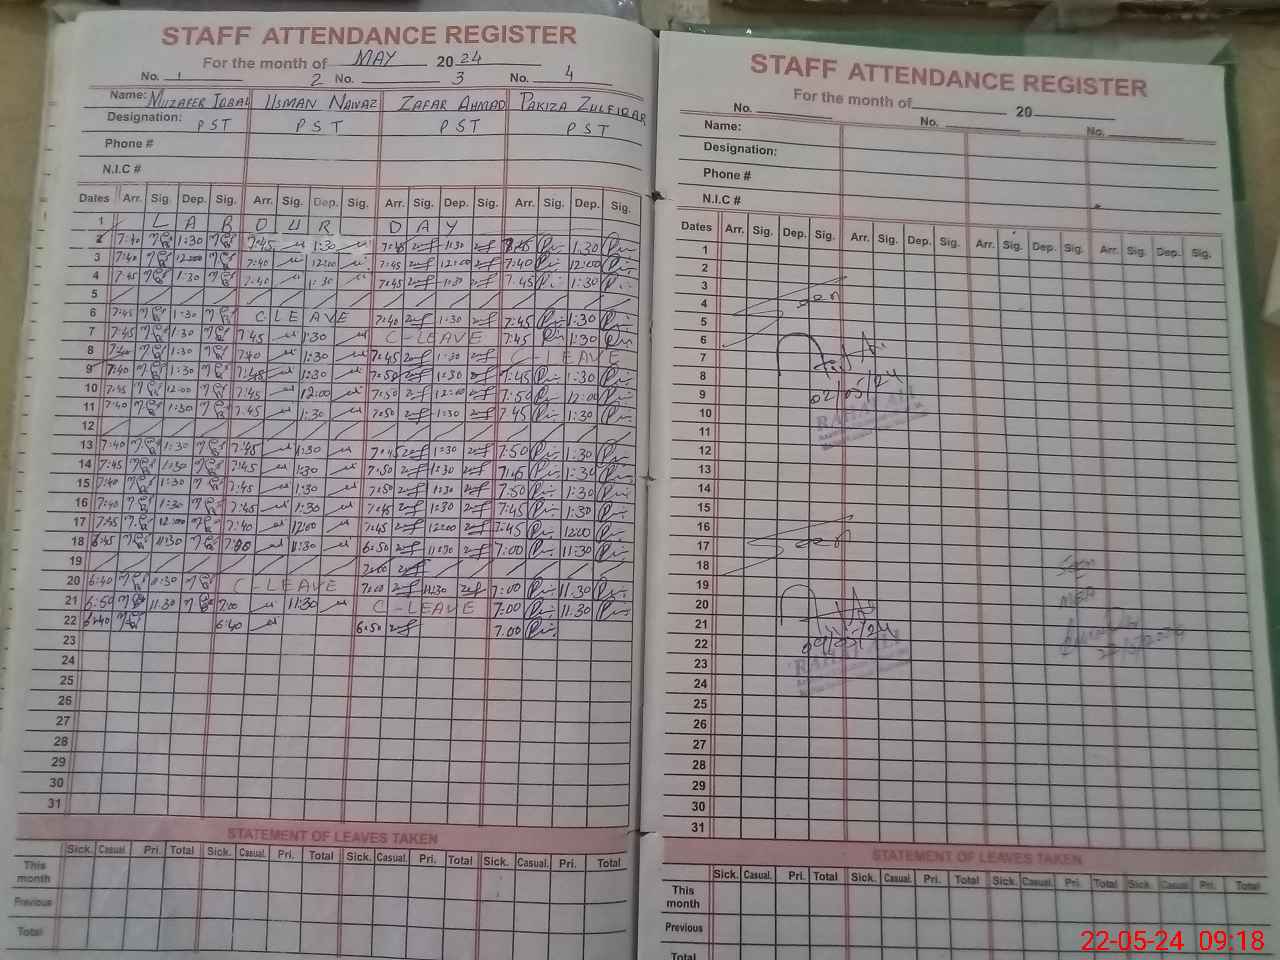 STAFF ATTENDANCE REGISTER
For the month of MAY 2024
No. 1 2 No. 3 No. 4
Name: MUZAFER IQBAL USMAN NAWAZ ZAFAR AHMAD PAKIZA ZULFIQAR
Designation: PST PST PST PST
Phone #
N.I.C #
Dates Arr. Sig. Dep. Sig. Arr. Sig. Dep. Sig. Arr. Sig. Dep. Sig. Arr. Sig. Dep. Sig.
1 LABOUR DAY
2 7:40 1:30 7:45 1:30 7:45 1:30 7:45 1:30
3 7:40 12:00 7:40 12:00 7:45 12:00 7:40 12:00
4 7:45 1:30 7:40 1:30 7:45 1:30 7.45 1:30
5
6 7:45 1:30 C LEAVE 7:40 1:30 7:45 1:30
7 7:45 1:30 7.45 1:30 C-LEAVE 7:45 1:30
8 7:40 1:30 7:40 1:30 7:45 1:30 C-LEAVE
9 7:40 1:30 7:45 1:30 7:50 1:30 7:45 1:30
10 7:45 12:00 7:45 12:00 7:50 12:00 7:50 12:00
11 7:40 1:30 7.45 1:30 7:50 1:30 7.45 1:30
12
13 7:40 1:30 7:45 1:30 7:45 1:30 7:50 1:30
14 7:45 1:30 7:45 1:30 7:50 1:30 7:45 1:30
15 7:40 1:30 7:45 1:30 7:50 1:30 7:50 1:30
16 7:40 1:30 7:45 1:30 7:45 1:30 7:45 1:30
17 7:45 12:00 7:40 12:00 7:45 12:00 7:45 12:00
18 6:45 11:30 11:30 6:50 11:30 7:00 11:30
19 7:00
20 6:40 11:30 C-LEAVE 7:00 11:30 7:00 11.30
21 6:50 11:30 7:00 11:30 C-LEAVE 7:00 11.30
22 6:40 6:40 6:50 7.00
23
24
25
26
27
28
29
30
31
STATEMENT OF LEAVES TAKEN
Sick. Casual. Pri. Total Sick. Casual. Pri. Total Sick. Casual. Pri. Total Sick. Casual. Pri. Total
This month
Previous
Total
STAFF ATTENDANCE REGISTER
For the month of 20
No. No. No.
Name:
Designation:
Phone #
N.I.C #
Dates Arr. Sig. Dep. Sig. Arr. Sig. Dep. Sig. Arr. Sig. Dep. Sig. Arr. Sig. Dep. Sig.
1
2
3
4 seen
5
6
7
8
9 02/05/24
10 RAHAT ALI
11
12
13
14
15
16
17 seen
18
19
20
21
22 09/05/24
23
24
25
26
27
28
29
30
31
STATEMENT OF LEAVES TAKEN
Sick. Casual. Pri. Total Sick. Casual. Pri. Total Sick. Casual. Pri. Total Sick. Casual. Pri. Total
This month
Previous
Total
22-05-24 09:18